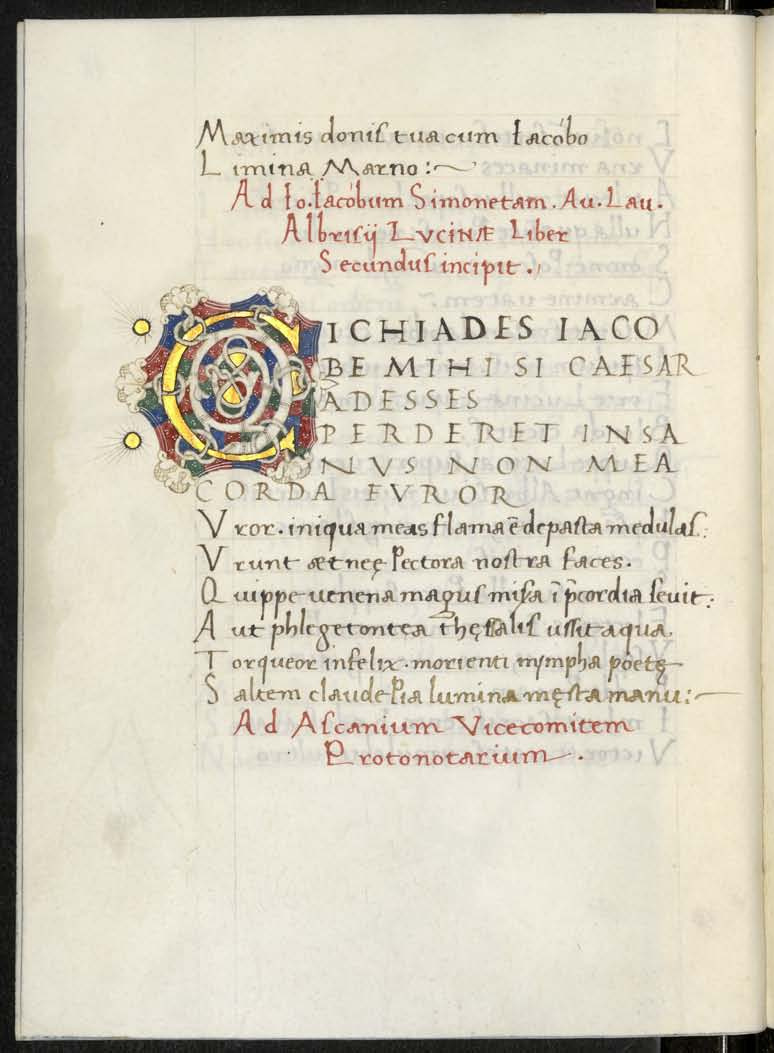 Maximis donis tua cum Iacóbo
Limina Marno:~
Ad Io. Iacóbum Simonetam. Au. Lau.
Albrisij LVCINÆ Liber
Secundus incipit.
CICHIADES IACO
BE MIHI SI CAESAR
ADESSES
PERDERET INSA
NVS NON MEA
CORDA FVROR
Vror. iniqua meas flama ē depasta medulas:
Vrunt ætneę Pectora nostra faces.
Quippe uenena magus misa ī p̄cordia seuit:
Aut phlegetontea thęssalis ussit aqua.
Torqueor infelix. morienti nympha poetę
Saltem claude Pia lumina męsta manu:~
Ad Ascanium Vicecomitem
Protonotarium.